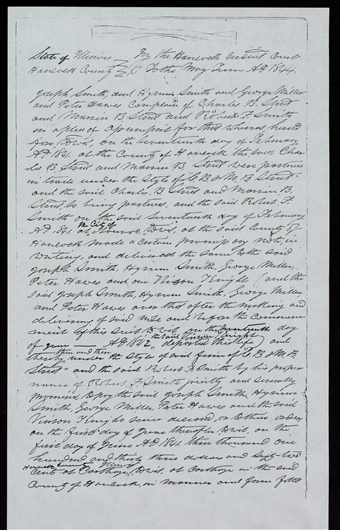 State of Illinois } In the Hancock Circuit Court
Hancock County } To the May Term AD 1844
Joseph Smith, and Hyrum Smith and George Miller
and Peter Hawes Complain of Charles B. Street
and Marvin B. Street and Robert F. Smith
in a plea of assumpsit for that whereas
on the seventeenth day of February
AD 1841 at the County of Hancock the said Char
les B Street and Marvin B. Street were partners
in trade under the Style of C. B & M B. Street
and the said Charles B Street and Marvin B.
Street being partners, and the said Robert F.
Smith on the said seventeenth day of February
AD at the City of Nauvoo, at the said County of
Hancock made a certain promissory note in
writing, and delivered the same to the said
Joseph Smith, Hyrum Smith, George Miller,
Peter Hawes and one Vinson Knight, and the
said Joseph Smith, Hyrum Smith, George Miller
and Peter Hawes aver that after the making and
delivering of said note and before the commence
ment of this Suit on the day
of AD 1842, the said Vinson Knight departed this life and
then and there
thereby under the Style of said firm of C. B & M B
Street and the said Robert F Smith by his proper
name of Robert F. Smith jointly and severally
promised to pay the said Joseph Smith, Hyrum
Smith, George Miller, Peter Hawes and the said
Vinson Knight
on the first day of June thereafter on the
first day of June AD 1841 three thousand one
hundred and thirty three dollars and sixty two
Hancock County Illinois
Cents at Carthage, at Carthage in the said
County of Hancock, in manner and form